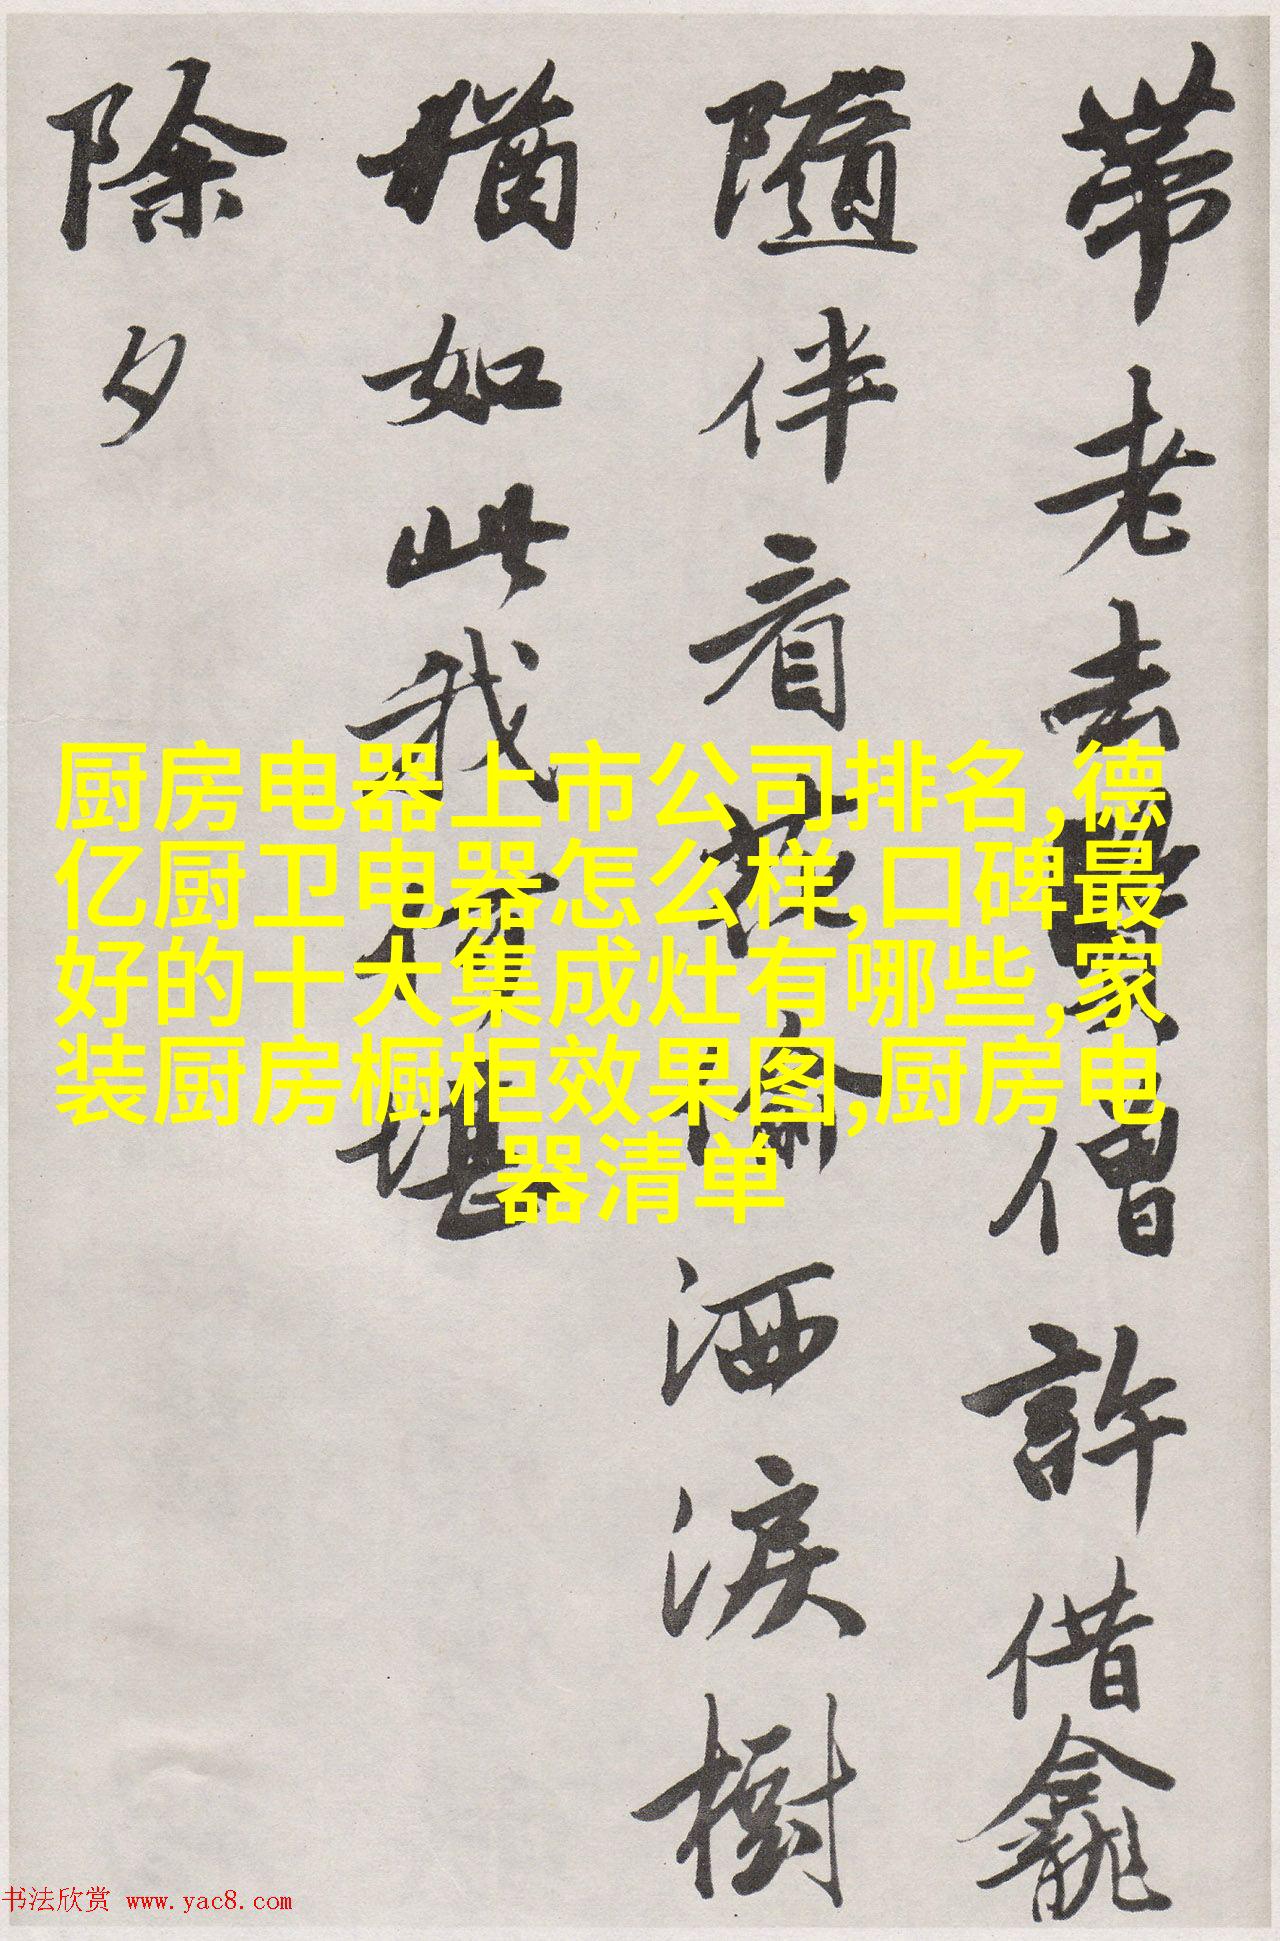 帶老去僧許借龕
隨伴看偷洒淚樹
猶如此我何堪
除夕
厨房电器上市公司排名,德
亿厨卫电器怎么样,口碑最
好的十大集成灶有哪些,家
装厨房橱柜效果图,厨房电
器清单
书法欣赏 www.yac8.com